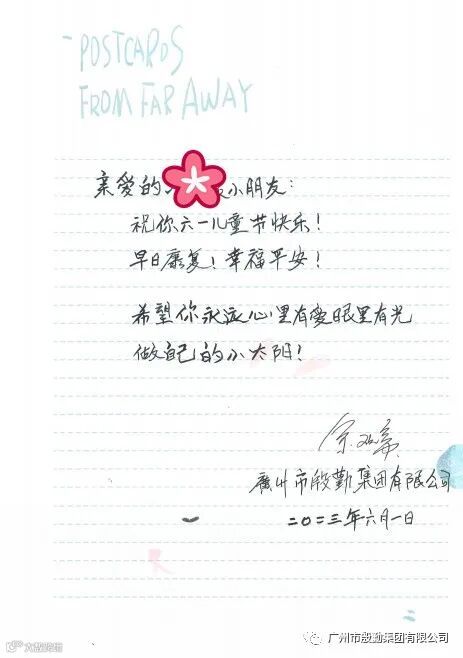 POSTCARDS
FROM FAR AWAY
亲爱的 小朋友:
祝你六一儿童节快乐!
早日康复!幸福平安!
希望你永远心里有爱眼里有光
做自己的小太阳!
广州市殷勤集团有限公司
二〇二三年六月一日
广州市殷勤集团有限公司
大数跨境